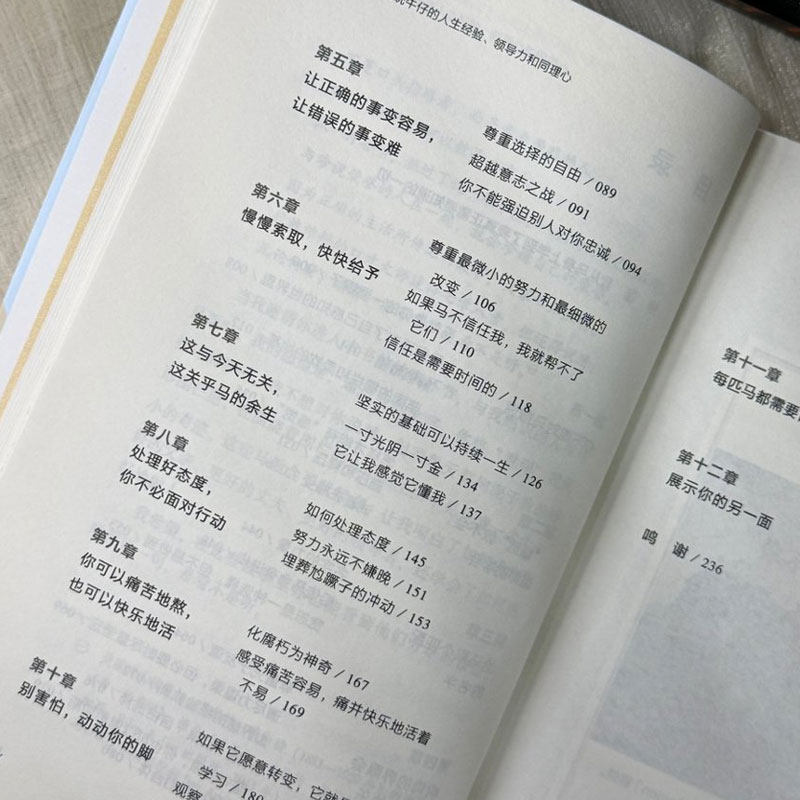 牛仔的人生经验、领导力和同理心
第五章
让正确的事变容易，
让错误的事变难
尊重选择的自由 / 089
超越意志之战 / 091
你不能强迫别人对你忠诚 / 094
第六章
慢慢索取，快快给予
尊重最微小的努力和最细微的
改变 / 106
如果马不信任我，我就帮不了
它们 / 110
信任是需要时间的 / 118
第七章
这与今天无关，
这关乎马的余生
坚实的基础可以持续一生 / 126
一寸光阴一寸金 / 134
它让我感觉它懂我 / 137
第八章
处理好态度，
你不必面对行动
如何处理态度 / 145
努力永远不嫌晚 / 151
埋葬尥蹶子的冲动 / 153
第九章
你可以痛苦地熬，
也可以快乐地活
化腐朽为神奇 / 167
感受痛苦容易，痛并快乐地活着
不易 / 169
第十章
别害怕，动动你的脚
如果它愿意转变，它就
学习 / 180
观察
第十一章
每匹马都需要
第十二章
展示你的另一面
鸣 谢 / 236